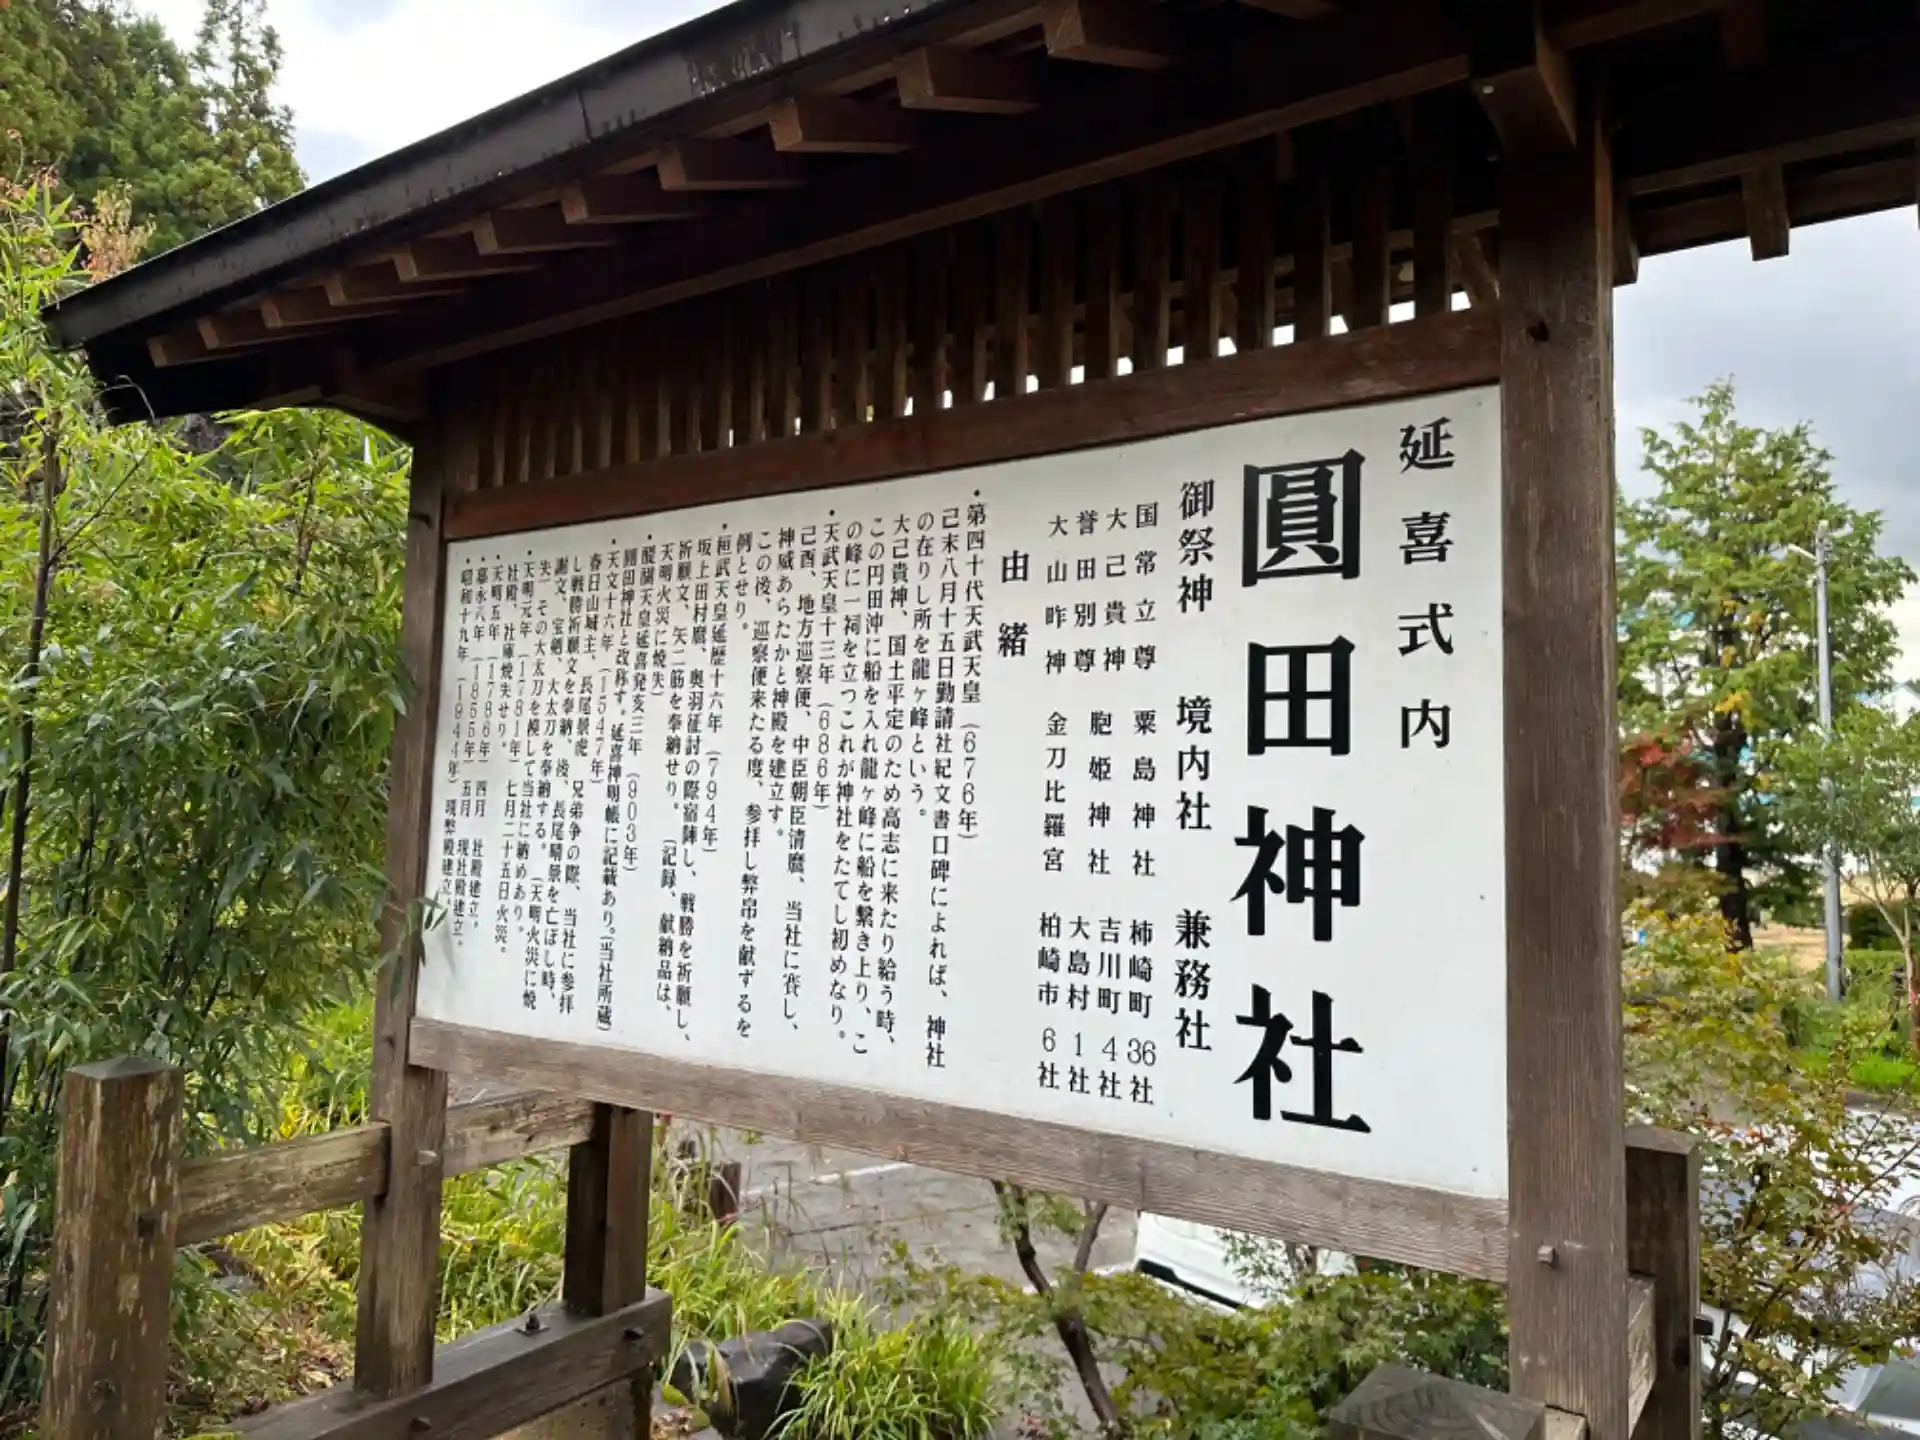 延喜式内
圓田神社
御祭神　境内社　兼務社
国常立尊　粟島神社　柿崎町36社
大己貴神　胞姫神社　吉川町4社
誉田別尊　大島村1社
大山昨神　金刀比羅宮　柏崎市6社
由緒
・第四十代天武天皇（676年）
己未八月十五日勤請社紀文書口碑によれば、神社
の在りし所を龍ヶ峰という。
大己貴神、国土平定のため高志に来たり給う時、
この円田沖に船を入れ龍ヶ峰に船を繋き上り、こ
の峰に一祠を立つこれが神社をたてし初めなり。
・天武天皇十三年（686年）
己酉、地方巡察便、中臣朝臣清麿、当社に賽し、
神威あらたかと神殿を建立す。
この後、巡察便来たる度、参拝し弊帛を献ずるを
例とせり。
・桓武天皇延歴十六年（794年）
坂上田村麿、奥羽征討の際宿陣し、戦勝を祈願し、
祈願文、矢二筋を奉納せり。（記録、献納品は、
天明火災に焼失）
・醍醐天皇延喜発亥三年（903年）
圓田神社と改称す。延喜神明帳に記載あり。（当社所蔵）
・天文十六年（1547年）
春日山城主、長尾景虎　兄弟争の際、当社に参拝
し戦勝祈願文を奉納、後、長尾晴景を亡ぼし時、
謝文、宝剱、大太刀を奉納する。（天明火災に焼
失）その大太刀を模して当社に納めあり。
・天明元年（1781年）七月二十五日火災。
社殿、社庫焼失せり。
・天明五年（1786年）四月　社殿建立。
・嘉永八年（1855年）五月　現社殿建立。
・昭和十九年（1944年）現弊殿建立。